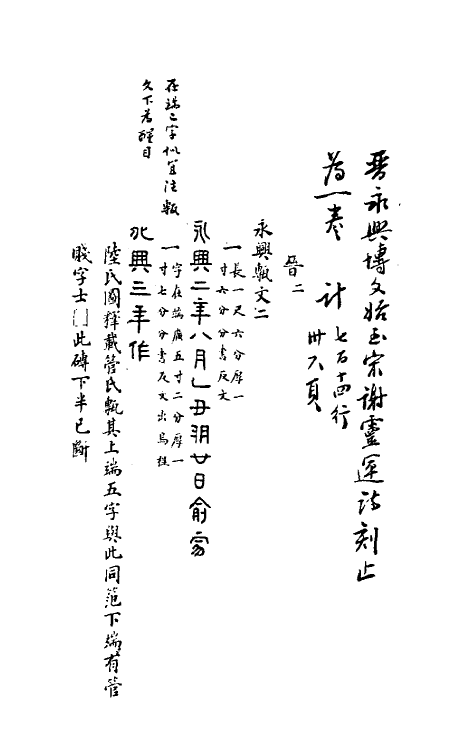 晉永興塼文始至宋謝靈運詩刻止
為一卷　計
七百十四行
卅六頁
晉二
永興甎文二
一長一尺六分厚一
寸六分分書反文
永興二年八月乙丑朔廿日俞家
一字在端廣五寸二分厚一
寸七分分書反文出烏程
永興三年作
陸氏國輝藏管氏甎其上端五字與此同笵下端有管
賤字士〔〕此磚下半已斷
在端二字似宜注甎
文下者醒目